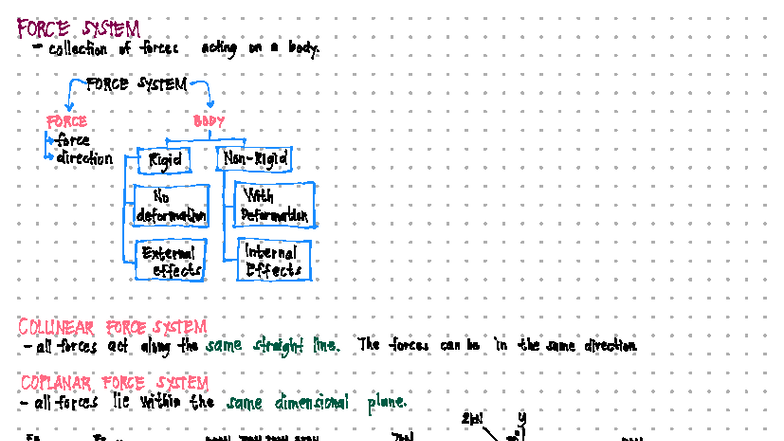 FORCE SYSTEM
- collection of forces acting on a body.
FORCE SYSTEM
FORCE
force
direction
BODY
Rigid
Non-Rigid
No
deformation
With
Deformation
External
effects
Internal
Effects
COLLINEAR FORCE SYSTEM
- all forces act along the same straight line. The forces can be in the same direction
COPLANAR FORCE SYSTEM
- all forces lie within the same dimensional plane.
2kN
y